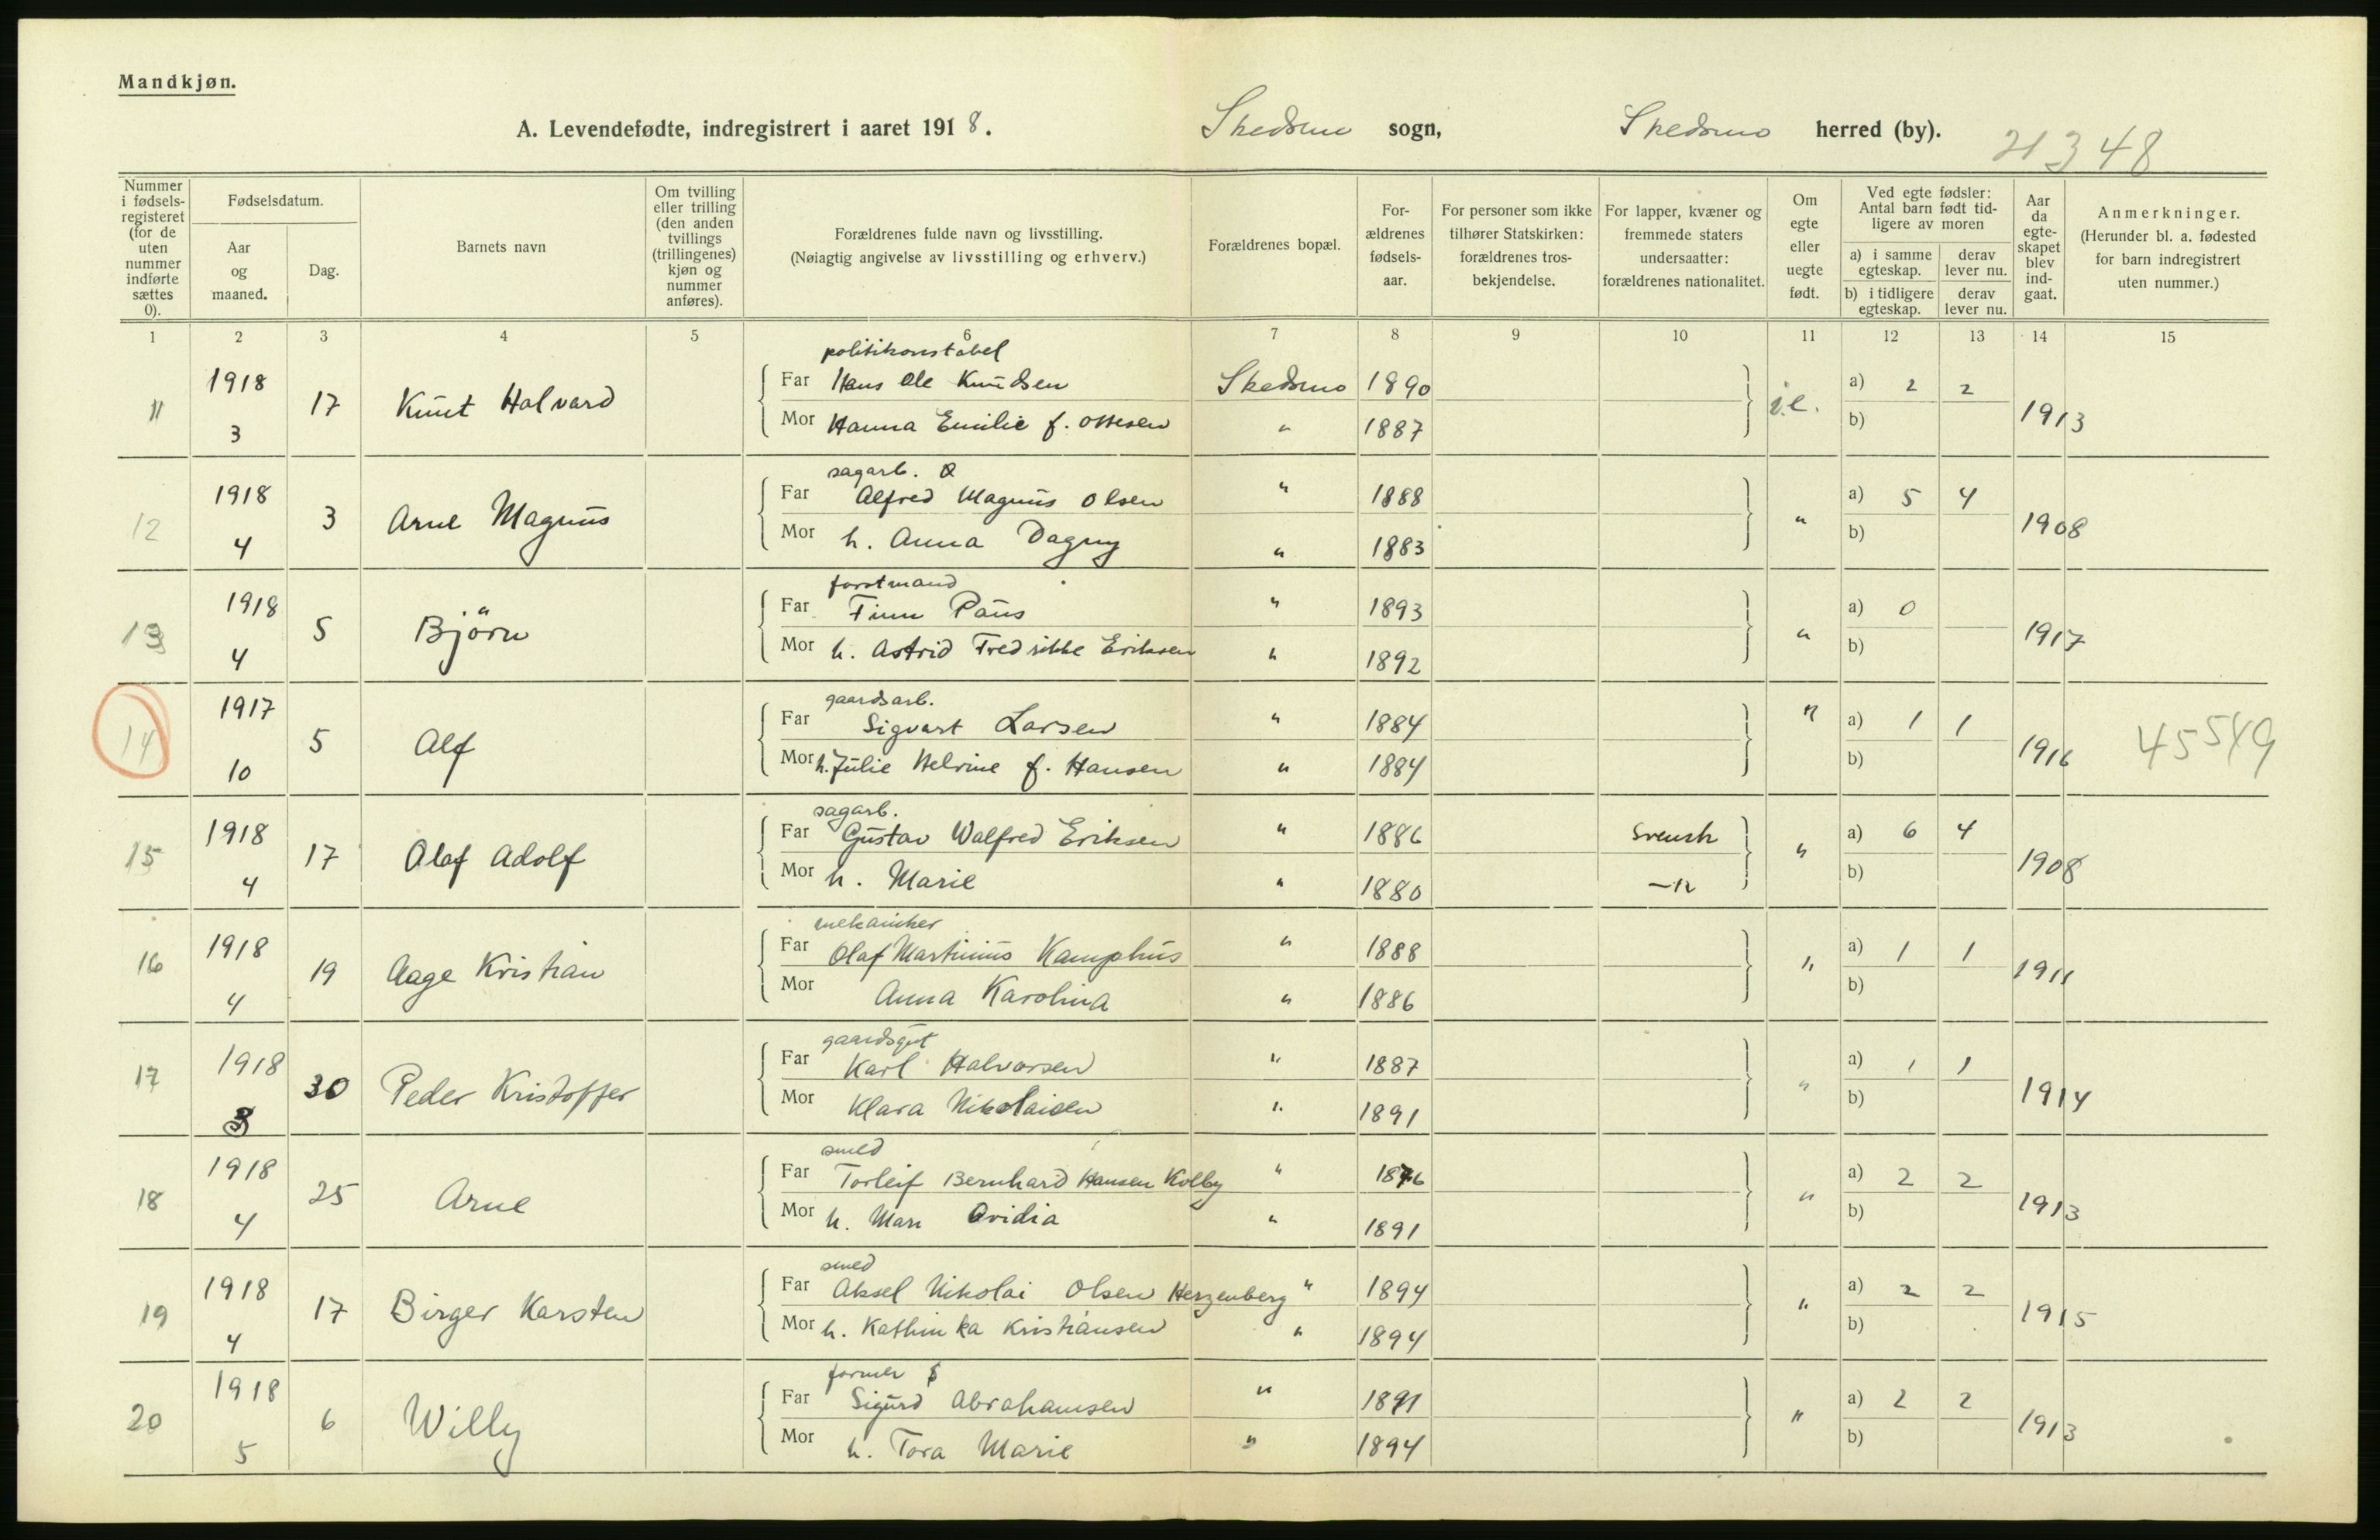 Mandkjøn.
A. Levendefødte, indregistrert i aaret 1918. Skedsmo sogn, Skedsmo herred (by).
21348
Nummer i fødsels-registeret (for de uten nummer indførte sættes 0).
Fødselsdatum.
Aar og maaned.
Dag.
Barnets navn
Om tvilling eller trilling (den anden tvillings (trillingenes) kjøn og nummer anføres).
Forældrenes fulde navn og livsstilling.
(Nøiagtig angivelse av livsstilling og erhverv.)
Forældrenes bopæl.
For-ældrenes fødsels-aar.
For personer som ikke tilhører Statskirken: forældrenes tros-bekjendelse.
For lapper, kvæner og fremmede staters undersaatter: forældrenes nationalitet.
Om egte eller uegte født.
Ved egte fødsler: Antal barn født tid-ligere av moren
a) i samme egteskap. derav lever nu.
b) i tidligere egteskap. derav lever nu.
Aar da egte-skapet blev ind-gaat.
Anmerkninger.
(Herunder bl. a. fødested for barn indregistrert uten nummer.)
1 2 3 4 5 6 7 8 9 10 11 12 13 14 15
politikonstabel
11 1918 3 17 Knut Halvard Far Hans Ole Knudsen Skedsmo 1890 a) 2 2 1913
Mor Hanna Emilie f. Ottesen " 1887 b)
sagarb.
12 1918 4 3 Arne Magnus Far Alfred Magnus Olsen " 1888 " a) 5 4 1908
Mor h. Anna Dagny " 1883 b)
forstmand
13 1918 4 5 Björn Far Finn Paus " 1893 " a) 0 1917
Mor h. Astrid Fredrikke Eriksen " 1892 b)
gaardsarb.
14 1917 10 5 Alf Far Sigvart Larsen " 1884 " a) 1 1 1916 45549
Mor h. Julie Helvine f. Hansen " 1884 b)
sagarb.
15 1918 4 17 Olaf Adolf Far Gustav Walfred Eriksen " 1886 Svensk " a) 6 4 1908
Mor h. Marie " 1880 —"— b)
mekaniker
16 1918 4 19 Aage Kristian Far Olaf Martinius Kamphus " 1888 " a) 1 1 1911
Mor Anna Karolina " 1886 b)
gaardsgut
17 1918 3 30 Peder Kristoffer Far Karl Halvorsen " 1887 " a) 1 1 1914
Mor Klara Nikolaisen " 1891 b)
smed
18 1918 4 25 Arne Far Torleif Bernhard Hansen Kolby " 1876 " a) 2 2 1913
Mor h. Mari Ovidia " 1891 b)
smed
19 1918 4 17 Birger Karsten Far Aksel Nikolai Olsen Herzenberg " 1894 " a) 2 2 1915
Mor h. Kathinka Kristiansen " 1894 b)
former
20 1918 5 6 Willy Far Sigurd Abrahamsen " 1891 " a) 2 2 1913
Mor h. Tora Marie " 1894 b)